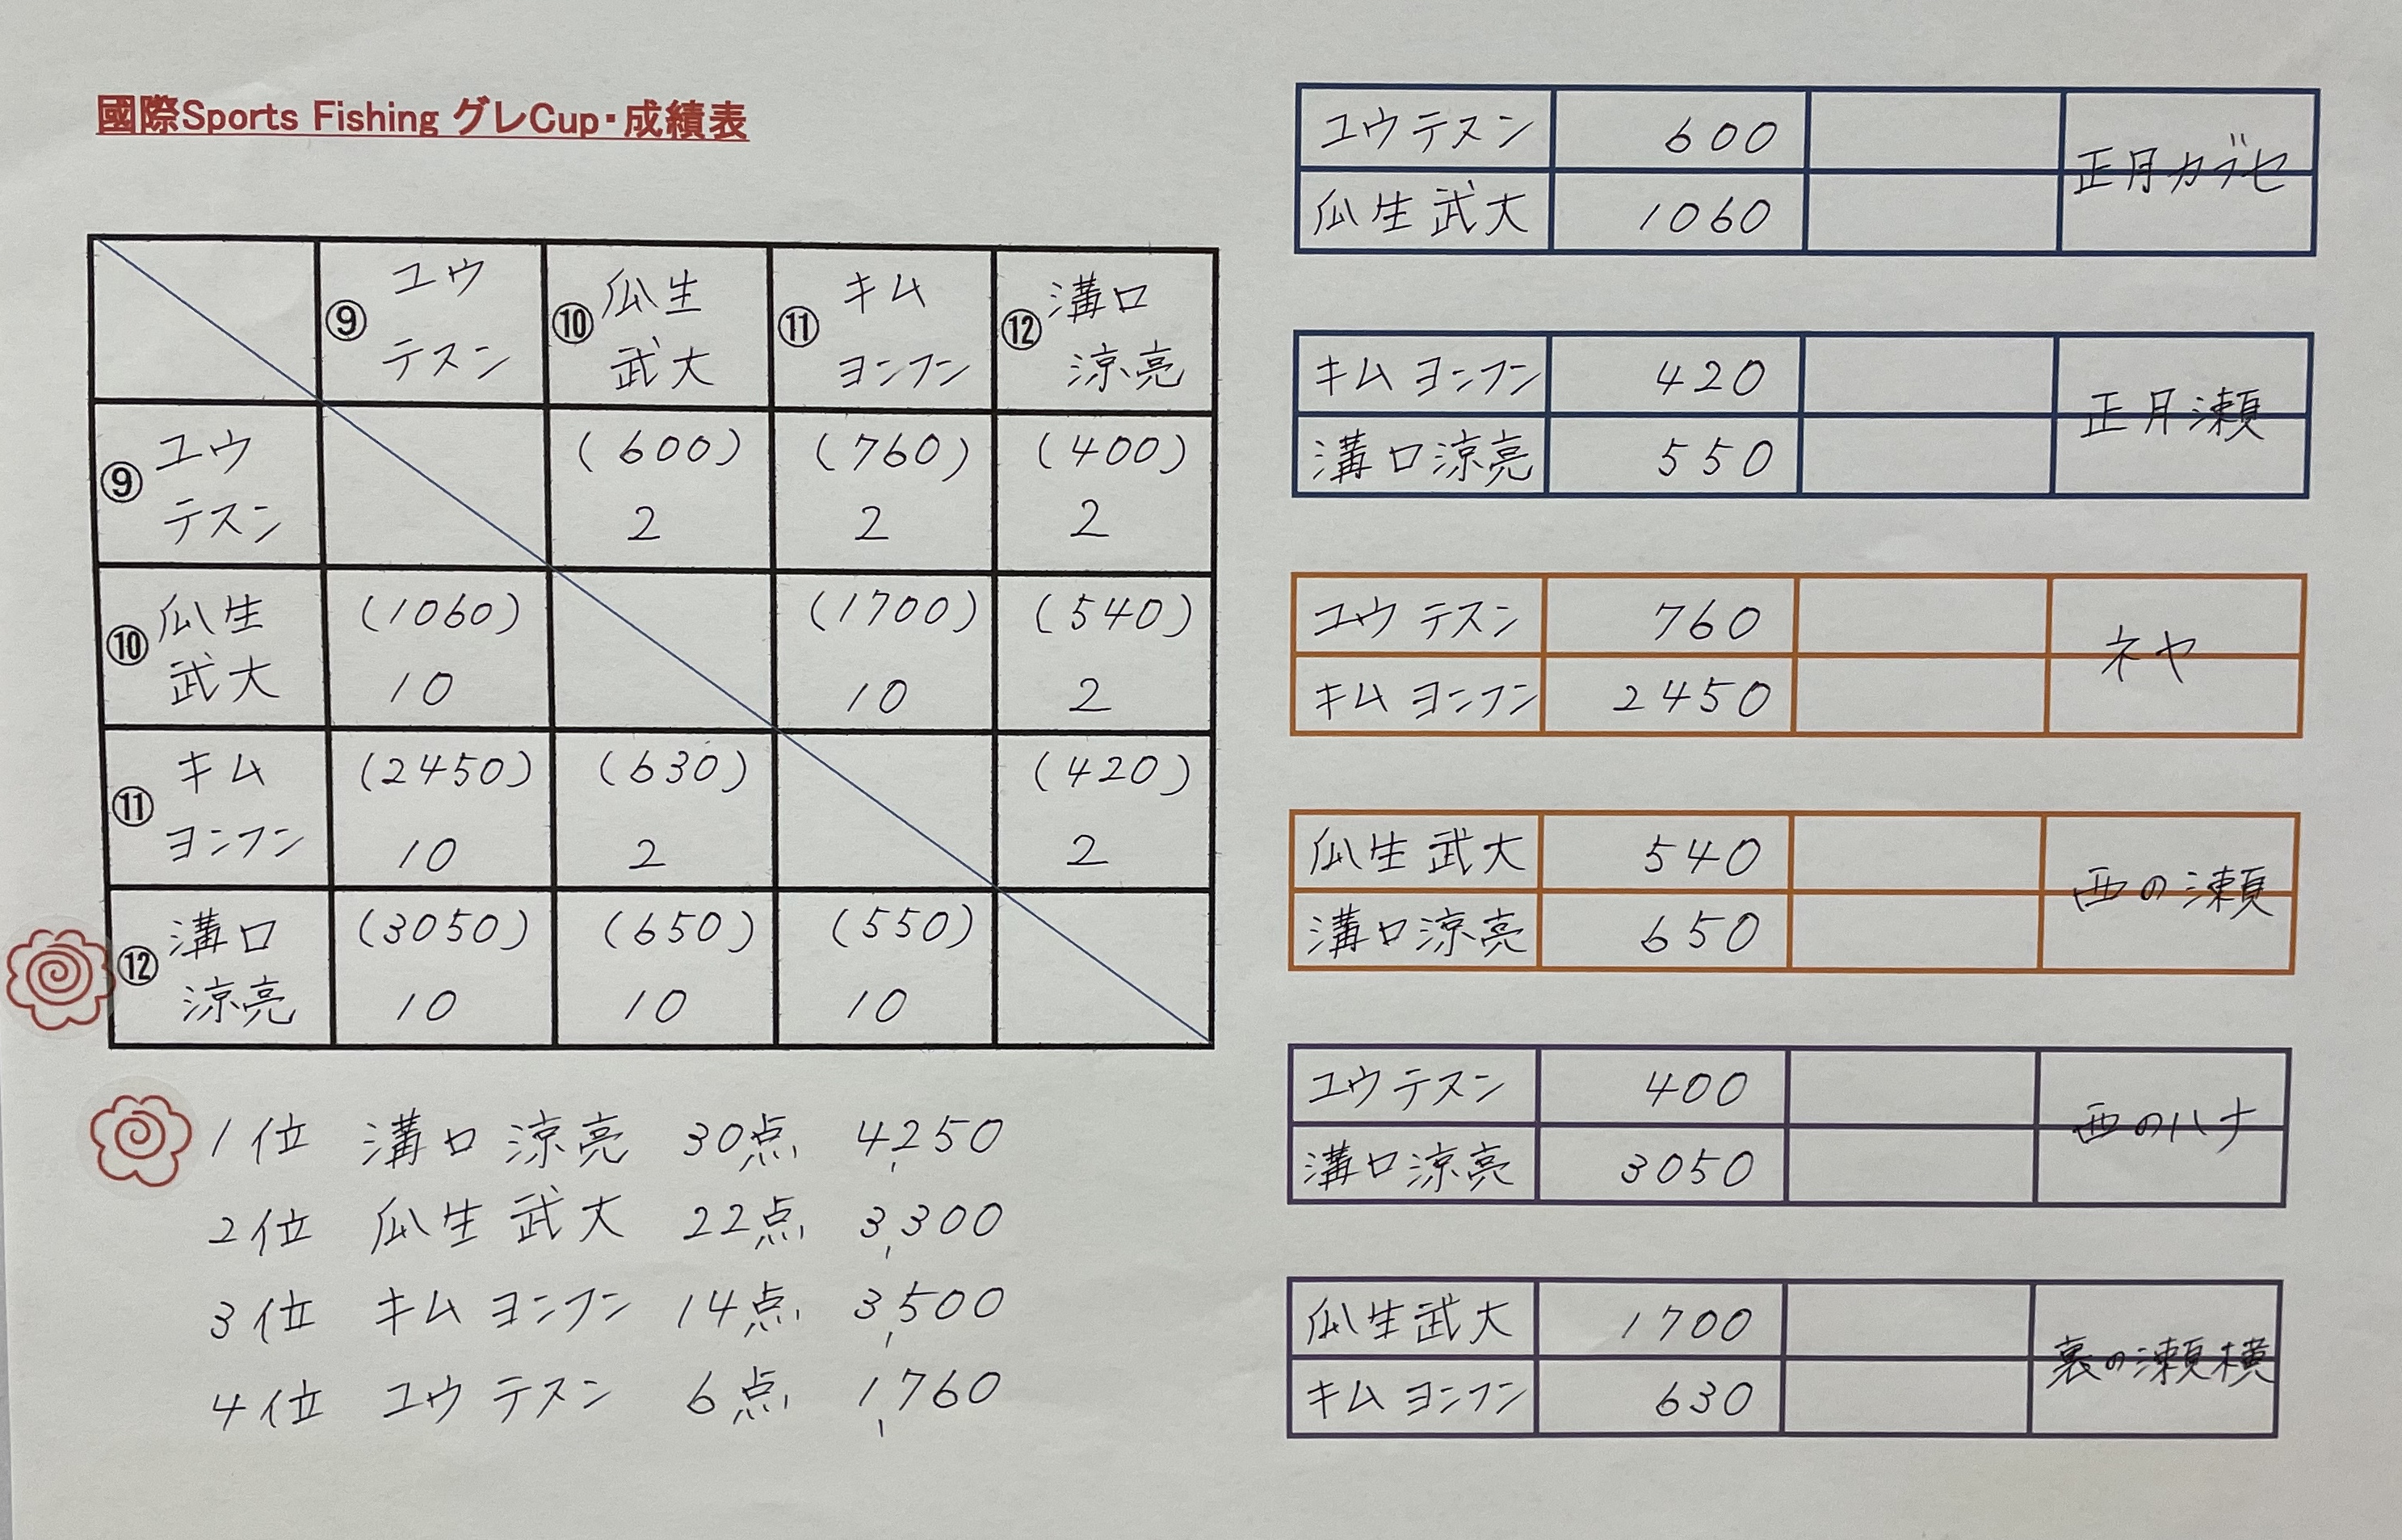 國際Sports Fishing グレCup・成績表
⑨ ユウ テスン ⑩ 瓜生 武大 ⑪ キム ヨンフン ⑫ 溝口 涼亮
⑨ ユウ テスン (600) 2 (760) 2 (400) 2
⑩ 瓜生 武大 (1060) 10 (1700) 10 (540) 2
⑪ キム ヨンフン (2450) 10 (630) 2 (420) 2
⑫ 溝口 涼亮 (3050) 10 (650) 10 (550) 10
1位 溝口 涼亮 30点 4,250
2位 瓜生 武大 22点 3,300
3位 キム ヨンフン 14点 3,500
4位 ユウ テスン 6点 1,760
ユウテスン 600 正月カブセ
瓜生武大 1060
キムヨンフン 420 正月瀬
溝口涼亮 550
ユウテスン 760 ネヤ
キムヨンフン 2450
瓜生武大 540 西の瀬
溝口涼亮 650
ユウテスン 400 西のハナ
溝口涼亮 3050
瓜生武大 1700 裏の瀬横
キムヨンフン 630